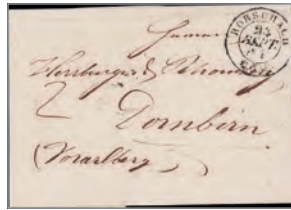 RORSCHACH
23
SEPT.
Herrburger & Rhomberg
2
Dornbirn
(Vorarlberg)